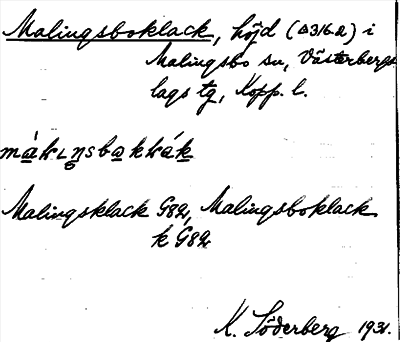 Malingsboklack, höjd (△316.2) i
Malingsbo sn, Västerbergs-
lags tg, Kopp. l.
Malingsklack G82, Malingsboklack
k G82
K. Söderberg 1931.